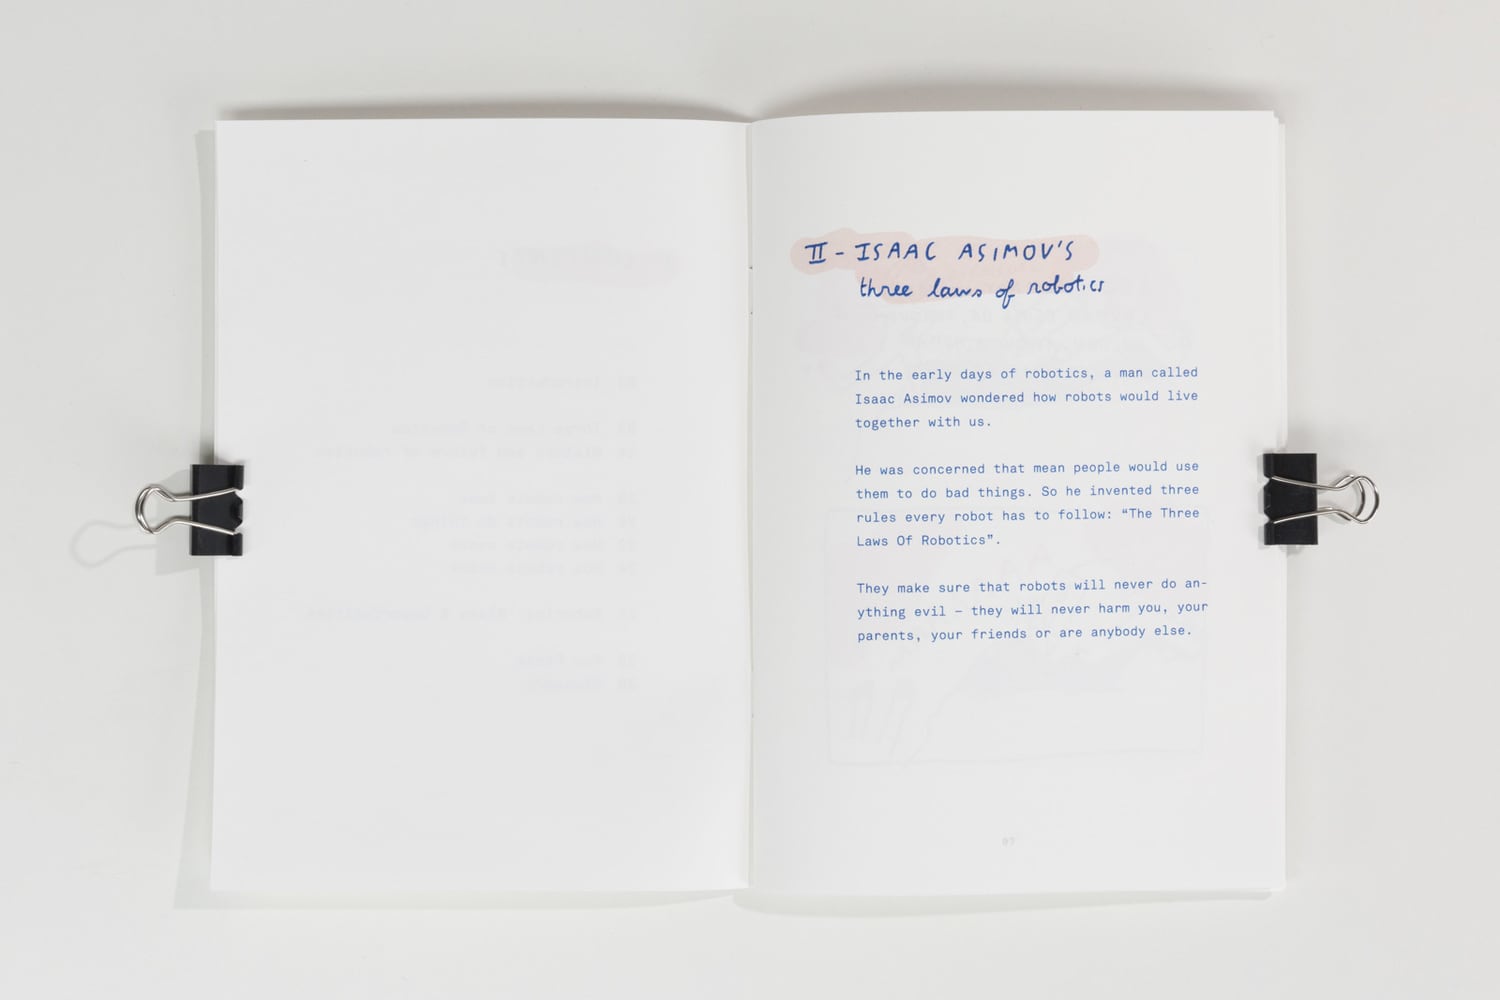 II - ISAAC ASIMOV'S
three laws of robotics
In the early days of robotics, a man called
Isaac Asimov wondered how robots would live
together with us.
He was concerned that mean people would use
them to do bad things. So he invented three
rules every robot has to follow: “The Three
Laws Of Robotics”.
They make sure that robots will never do an-
ything evil – they will never harm you, your
parents, your friends or are anybody else.
07